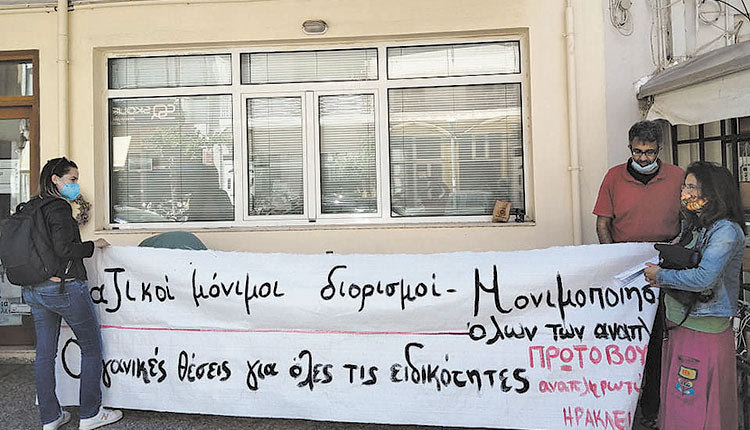 αζικοί μόνιμοι διορισμοί - Μονιμοποιησ
όλων των αναπλ
Ο γανικές θέσεις για όλες τις ειδικότητες
ΠΡΩΤΟΒΟΥ
αναπληρωτώ
ΗΡΑΚΛΕΙ